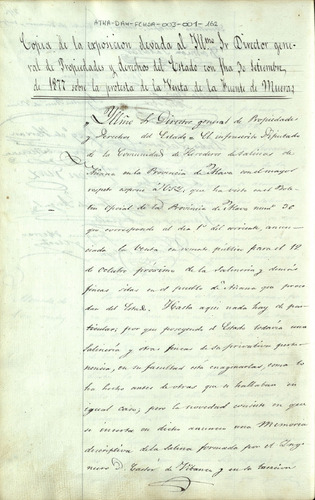 ATHA-DAH-FCHSA-003-001-162
Copia de la exposicion elevada al Ilmo Sr Director gene-
ral de Propiedades y derechos del Estado con fha 30 setiembre,
de 1877 sobre la protesta de la Venta de la Fuente de Muera
Illmo Sr Director general de Propiedades
y Derechos del Estado = El infrascrito Diputado
de la Comunidad de herederos de Salinas de
Añana en la Provincia de Alava con el mayor
respeto espone á V.S.I. que ha visto en el Bole-
tin oficial de la Provincia de Alava num 30
que corresponde al dia 1º del corriente, anun-
ciada la Venta en remate publico para el 12
de octubre procsimo de la Salineria y demas
fincas sitas en el pueblo de Añana que proce-
den del Estado. Hasta aqui nada hay de par-
ticular; por que poseyendo el Estado todavia una
Salineria y otras fincas de su privativa perte-
nencia, en su facultad está enagenarlas, como lo
ha hecho antes de otras que se hallaban en
igual caso; pero la novedad consiste en que
se inserta en dicho anuncio una Memoria
descriptiva de la Salina formada por el Inge-
niero D. Castor de Añana y en su seccion